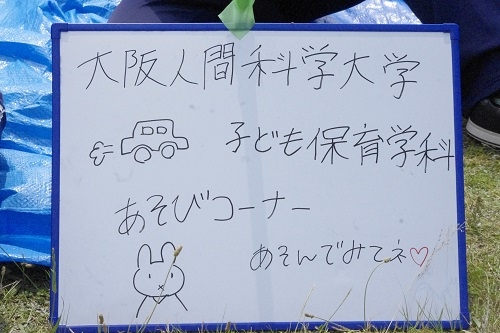 大阪人間科学大学
子ども保育学科
あそびコーナー
あそんでみてネ♡